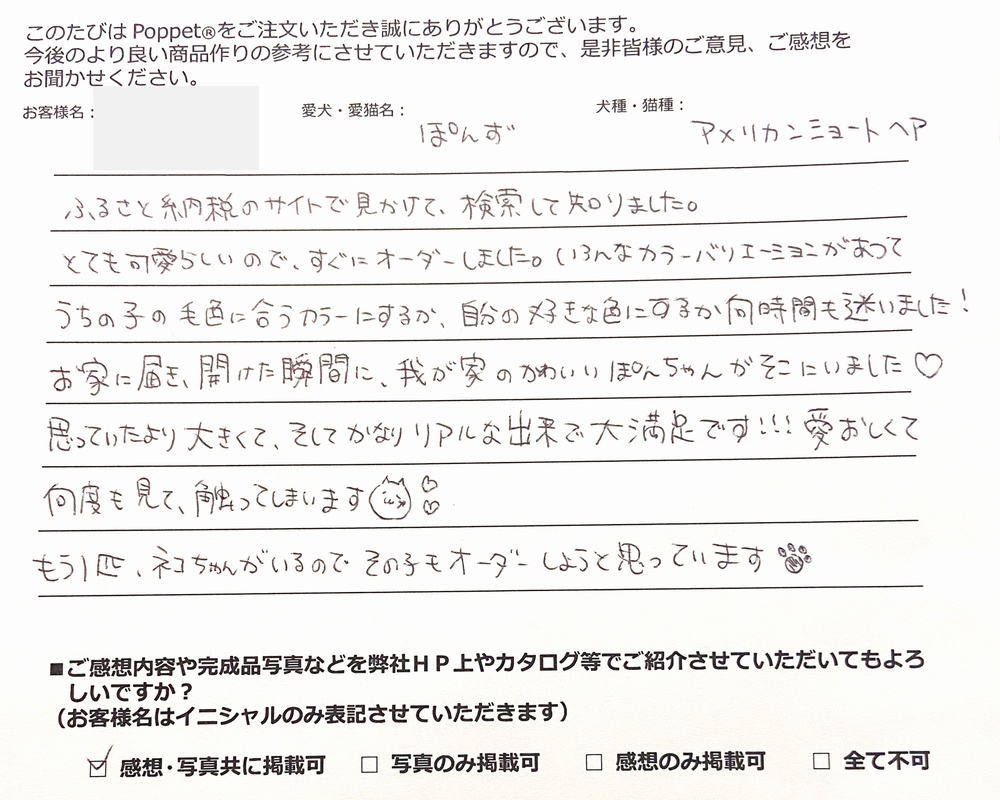 このたびは Poppet®をご注文いただき誠にありがとうございます。
今後のより良い商品作りの参考にさせていただきますので、是非皆様のご意見、ご感想を
お聞かせください。
お客様名： 愛犬・愛猫名： ぽんず 犬種・猫種： アメリカンショートヘア
ふるさと納税のサイトで見かけて、検索して知りました。
とても可愛らしいので、すぐにオーダーしました。いろんなカラーバリエーションがあって
うちの子の毛色に合うカラーにするか、自分の好きな色にするか何時間も迷いました！
お家に届き、開けた瞬間に、我が家のかわいいぽんちゃんがそこにいました♡
思っていたより大きくて、そしてかなりリアルな出来で大満足です!!! 愛おしくて
何度も見て、触ってしまいます
もう1匹、ネコちゃんがいるのでその子もオーダーしようと思っています
■ご感想内容や完成品写真などを弊社ＨＰ上やカタログ等でご紹介させていただいてもよろ
しいですか？
（お客様名はイニシャルのみ表記させていただきます）
☑ 感想・写真共に掲載可 □ 写真のみ掲載可 □ 感想のみ掲載可 □ 全て不可